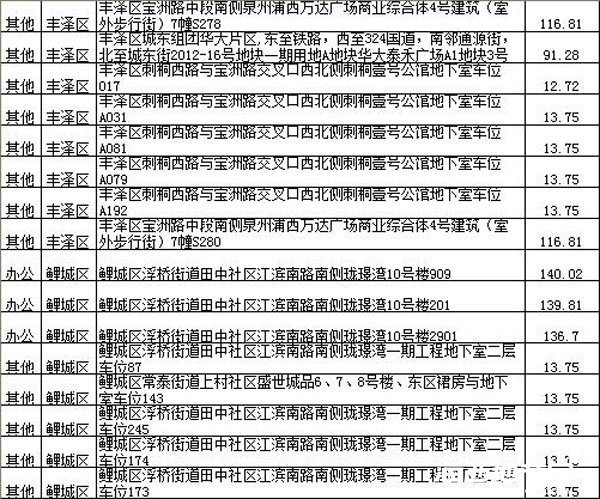 其他 丰泽区 丰泽区宝洲路中段南侧泉州浦西万达广场商业综合体4号建筑（室
外步行街）7幢S278 116.81
其他 丰泽区 丰泽区城东组团华大片区,东至铁路，西至324国道，南邻通源街，
北至城东街2012-16号地块一期用地A地块华大泰禾广场A1地块3号 91.28
其他 丰泽区 丰泽区刺桐西路与宝洲路交叉口西北侧刺桐壹号公馆地下室车位
017 12.72
其他 丰泽区 丰泽区刺桐西路与宝洲路交叉口西北侧刺桐壹号公馆地下室车位
A031 13.75
其他 丰泽区 丰泽区刺桐西路与宝洲路交叉口西北侧刺桐壹号公馆地下室车位
A081 13.75
其他 丰泽区 丰泽区刺桐西路与宝洲路交叉口西北侧刺桐壹号公馆地下室车位
A079 13.75
其他 丰泽区 丰泽区刺桐西路与宝洲路交叉口西北侧刺桐壹号公馆地下室车位
A192 13.75
其他 丰泽区 丰泽区宝洲路中段南侧泉州浦西万达广场商业综合体4号建筑（室
外步行街）7幢S280 116.81
办公 鲤城区 鲤城区浮桥街道田中社区江滨南路南侧珑璟湾10号楼909 140.02
办公 鲤城区 鲤城区浮桥街道田中社区江滨南路南侧珑璟湾10号楼201 139.81
办公 鲤城区 鲤城区浮桥街道田中社区江滨南路南侧珑璟湾10号楼2901 136.7
其他 鲤城区 鲤城区浮桥街道田中社区江滨南路南侧珑璟湾一期工程地下室二层
车位87 13.75
其他 鲤城区 鲤城区常泰街道上村社区盛世城品6、7、8号楼、东区裙房与地下
室车位143 13.75
其他 鲤城区 鲤城区浮桥街道田中社区江滨南路南侧珑璟湾一期工程地下室二层
车位245 13.75
其他 鲤城区 鲤城区浮桥街道田中社区江滨南路南侧珑璟湾一期工程地下室二层
车位174
其他 鲤城区 鲤城区浮桥街道田中社区江滨南路南侧珑璟湾一期工程地下室二层
车位173 13.75